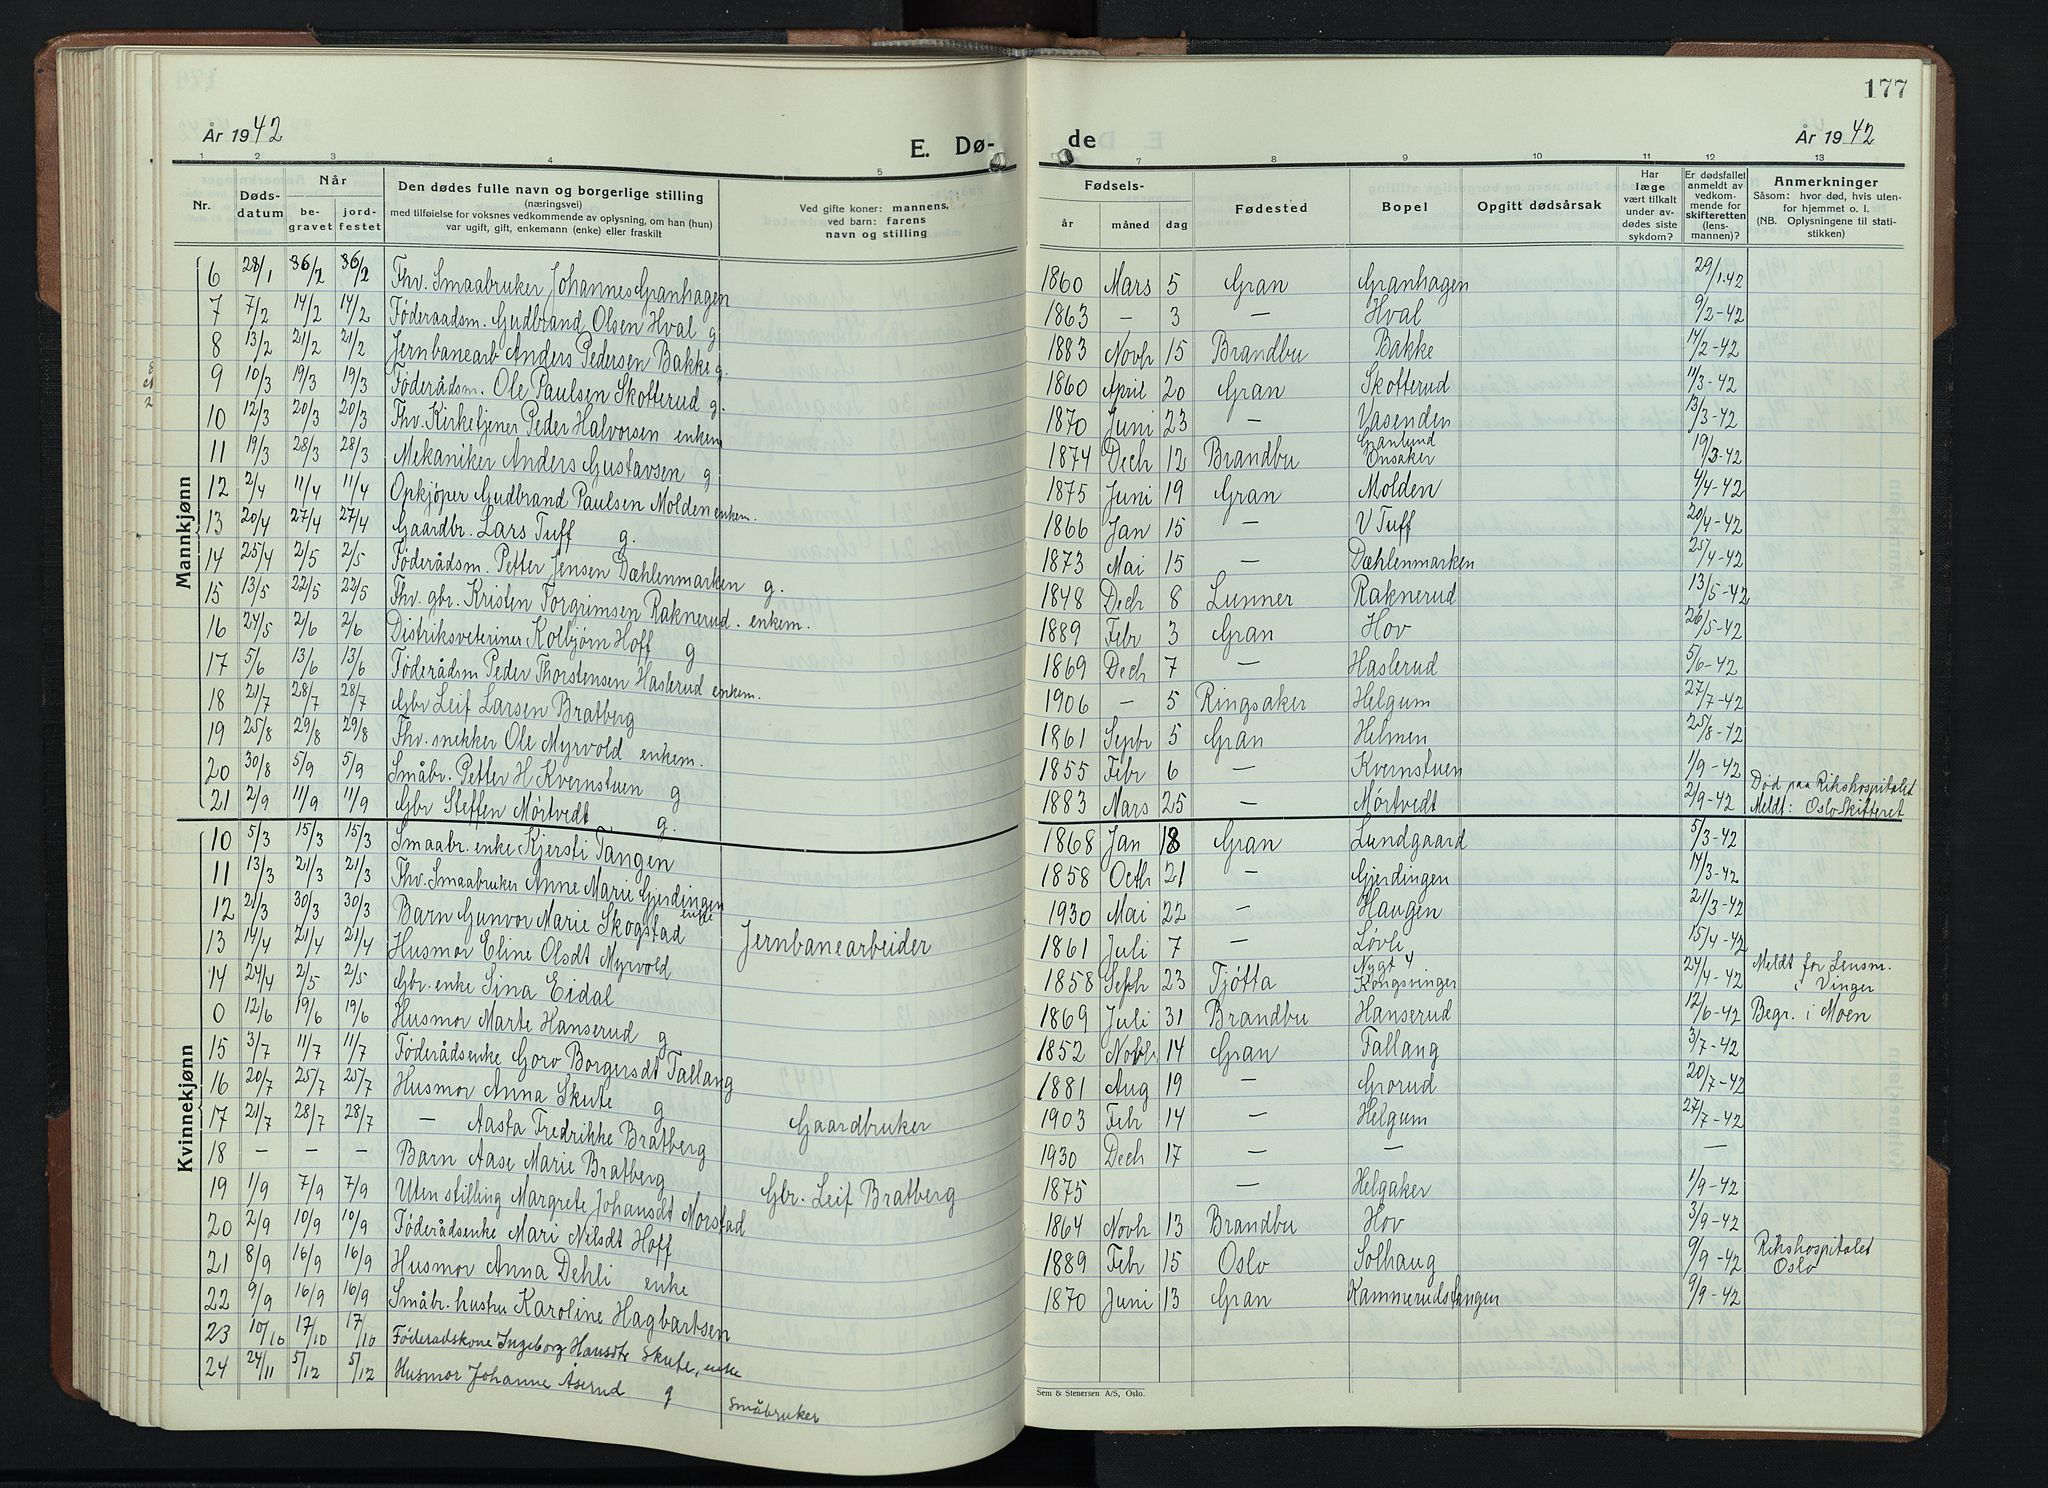 177
År 1942
E. Dø-
de
År 1942
1 2 3 4 5 7 8 9 10 11 12 13
Nr. | Døds-datum | Når be-gravet | jord-festet | Den dødes fulle navn og borgerlige stilling (næringsvei) med tilføielse for voksnes vedkommende av oplysning, om han (hun) var ugift, gift, enkemann (enke) eller fraskilt | Ved gifte koner: mannens, ved barn: farens navn og stilling | Fødsels- år | måned | dag | Fødested | Bopel | Opgitt dødsårsak | Har læge vært tilkalt under av-dødes siste sykdom? | Er dødsfallet anmeldt av vedkom-mende for skifteretten (lens-mannen)? | Anmerkninger Såsom: hvor død, hvis uten-for hjemmet o. l. (NB. Oplysningene til stati-stikken)
Mannkjønn
6 | 28/1 | 6/2 | 6/2 | Fhv. Smaabruker Johannes Granhagen | 1860 | Mars | 5 | Gran | Granhagen | 29/1.42
7 | 7/2 | 14/2 | 14/2 | Føderaadsm. Gudbrand Olsen Hval g | 1863 | — | 3 | — | Hval | 9/2-42
8 | 13/2 | 21/2 | 21/2 | Jernbanearb Anders Pedersen Bakke g. | 1883 | Novbr | 15 | Brandbu | Bakke | 14/2-42
9 | 10/3 | 19/3 | 19/3 | Føderådsm. Ole Paulsen Skotterud g. | 1860 | April | 20 | Gran | Skotterud | 11/3-42
10 | 12/3 | 20/3 | 20/3 | Fhv. Kirketjener Peder Halvorsen enkem | 1870 | Juni | 23 | — | Vasenden | 13/3-42
11 | 19/3 | 28/3 | 28/3 | Mekaniker Anders Gustavsen g | 1874 | Decbr | 12 | Brandbu | Granlund Onsaker | 19/3-42
12 | 2/4 | 11/4 | 11/4 | Opkjøper Gudbrand Paulsen Molden enkem. | 1875 | Juni | 19 | Gran | Molden | 4/4-42
13 | 20/4 | 27/4 | 27/4 | Gaardbr. Lars Tuff g. | 1866 | Jan | 15 | — | V Tuff | 20/4-42
14 | 25/4 | 2/5 | 2/5 | Føderådsm. Petter Jensen Dæhlenmarken g. | 1873 | Mai | 15 | — | Dæhlenmarken | 25/4-42
15 | 13/5 | 22/5 | 22/5 | Fhv. gbr. Kristen Torgrimsen Raknerud. enkem. | 1848 | Decbr | 8 | Lunner | Raknerud | 13/5-42
16 | 24/5 | 2/6 | 2/6 | Distriksveteriner Kolbjørn Hoff g | 1889 | Febr | 3 | Gran | Hov | 26/5-42
17 | 5/6 | 13/6 | 13/6 | Føderådsm Peder Thorstensen Haslerud enkem. | 1869 | Decbr | 7 | — | Haslerud | 5/6-42
18 | 21/7 | 28/7 | 28/7 | Gbr Leif Larsen Bratberg | 1906 | — | 5 | Ringsaker | Helgum | 27/7-42
19 | 25/8 | 29/8 | 29/8 | Fhv. snekker Ole Myrvold enkem. | 1861 | Septbr | 5 | Gran | Helmen | 25/8-42
20 | 30/8 | 5/9 | 5/9 | Småbr. Petter H Kvernstuen g | 1855 | Febr | 6 | — | Kvernstuen | 1/9-42
21 | 2/9 | 11/9 | 11/9 | Gbr Steffen Mørtvedt g. | 1883 | Mars | 25 | — | Mørtvedt | 2/9-42 | Død paa Rikshospitalet Meldt: Oslo Skifteret
Kvinnekjønn
10 | 5/3 | 15/3 | 15/3 | Smaabr. enke Kjersti Tangen | 1868 | Jan | 18 | Gran | Lundgaard | 5/3-42
11 | 13/3 | 21/3 | 21/3 | Fhv. Smaabruker Anne Marie Gjerdingen enke | 1858 | Octbr | 21 | — | Gjerdingen | 17/3-42
12 | 21/3 | 30/3 | 30/3 | Barn Gunvor Marie Skogstad | Jernbanearbeider | 1930 | Mai | 22 | — | Haugen | 21/3-42
13 | 14/4 | 21/4 | 21/4 | Husmor Eline Olsdt Myrvold | 1861 | Juli | 7 | — | Løvli | 15/4-42
14 | 24/4 | 2/5 | 2/5 | Gbr. enke Sina Eidal | 1858 | Septbr | 23 | Tjøtta | Nygt 4 Kongsvinger | 24/4-42 | Meldt for Lensm. i Vinger
0 | 12/6 | 19/6 | 19/6 | Husmor Marte Hanserud g | 1869 | Juli | 31 | Brandbu | Hanserud | 12/6-42 | Begr. i Moen
15 | 3/7 | 11/7 | 11/7 | Føderådsenke Goro Borgersdt Tallang | 1852 | Novbr | 14 | Gran | Tallang | 3/7-42
16 | 20/7 | 25/7 | 25/7 | Husmor Anna Skute g | 1881 | Aug | 19 | — | Grorud | 20/7-42
17 | 21/7 | 28/7 | 28/7 | — Aasta Fredrikke Bratberg | Gaardbruker | 1903 | Febr | 14 | — | Helgum | 27/7-42
18 | — | — | — | Barn Aase Marie Bratberg | Gbr. Leif Bratberg | 1930 | Decbr | 17 | — | — | —
19 | 1/9 | 7/9 | 7/9 | Uten stilling Margrete Johansdt Morstad | 1875 | — | Helgaker | 1/9-42
20 | 2/9 | 10/9 | 10/9 | Føderådsenke Mari Nilsdt Hoff | 1864 | Novbr | 13 | Brandbu | Hov | 3/9-42
21 | 8/9 | 16/9 | 16/9 | Husmor Anna Dehli enke | 1889 | Febr | 15 | Oslo | Solhaug | 9/9-42 | Rikshospitalet Oslo
22 | 9/9 | 16/9 | 16/9 | Småbr. hustru Karoline Hagbartsen | 1870 | Juni | 13 | Gran | Kammerudstangen | 9/9-42
23 | 10/10 | 17/10 | 17/10 | Føderadskone Ingeborg Hansdtr Skute, enke
24 | 24/11 | 5/12 | 5/12 | Husmor Johanne Åserud g | Småbruker
Sem & Stenersen A/S, Oslo.